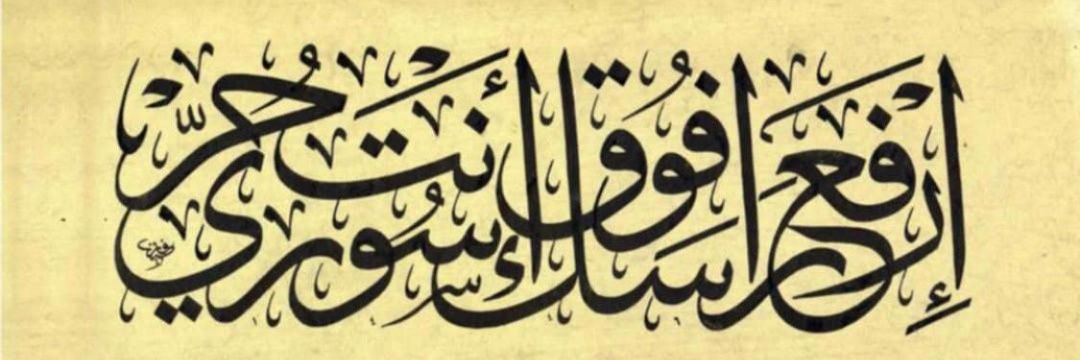 إرفع راسك فوق أنت سوري حرّ